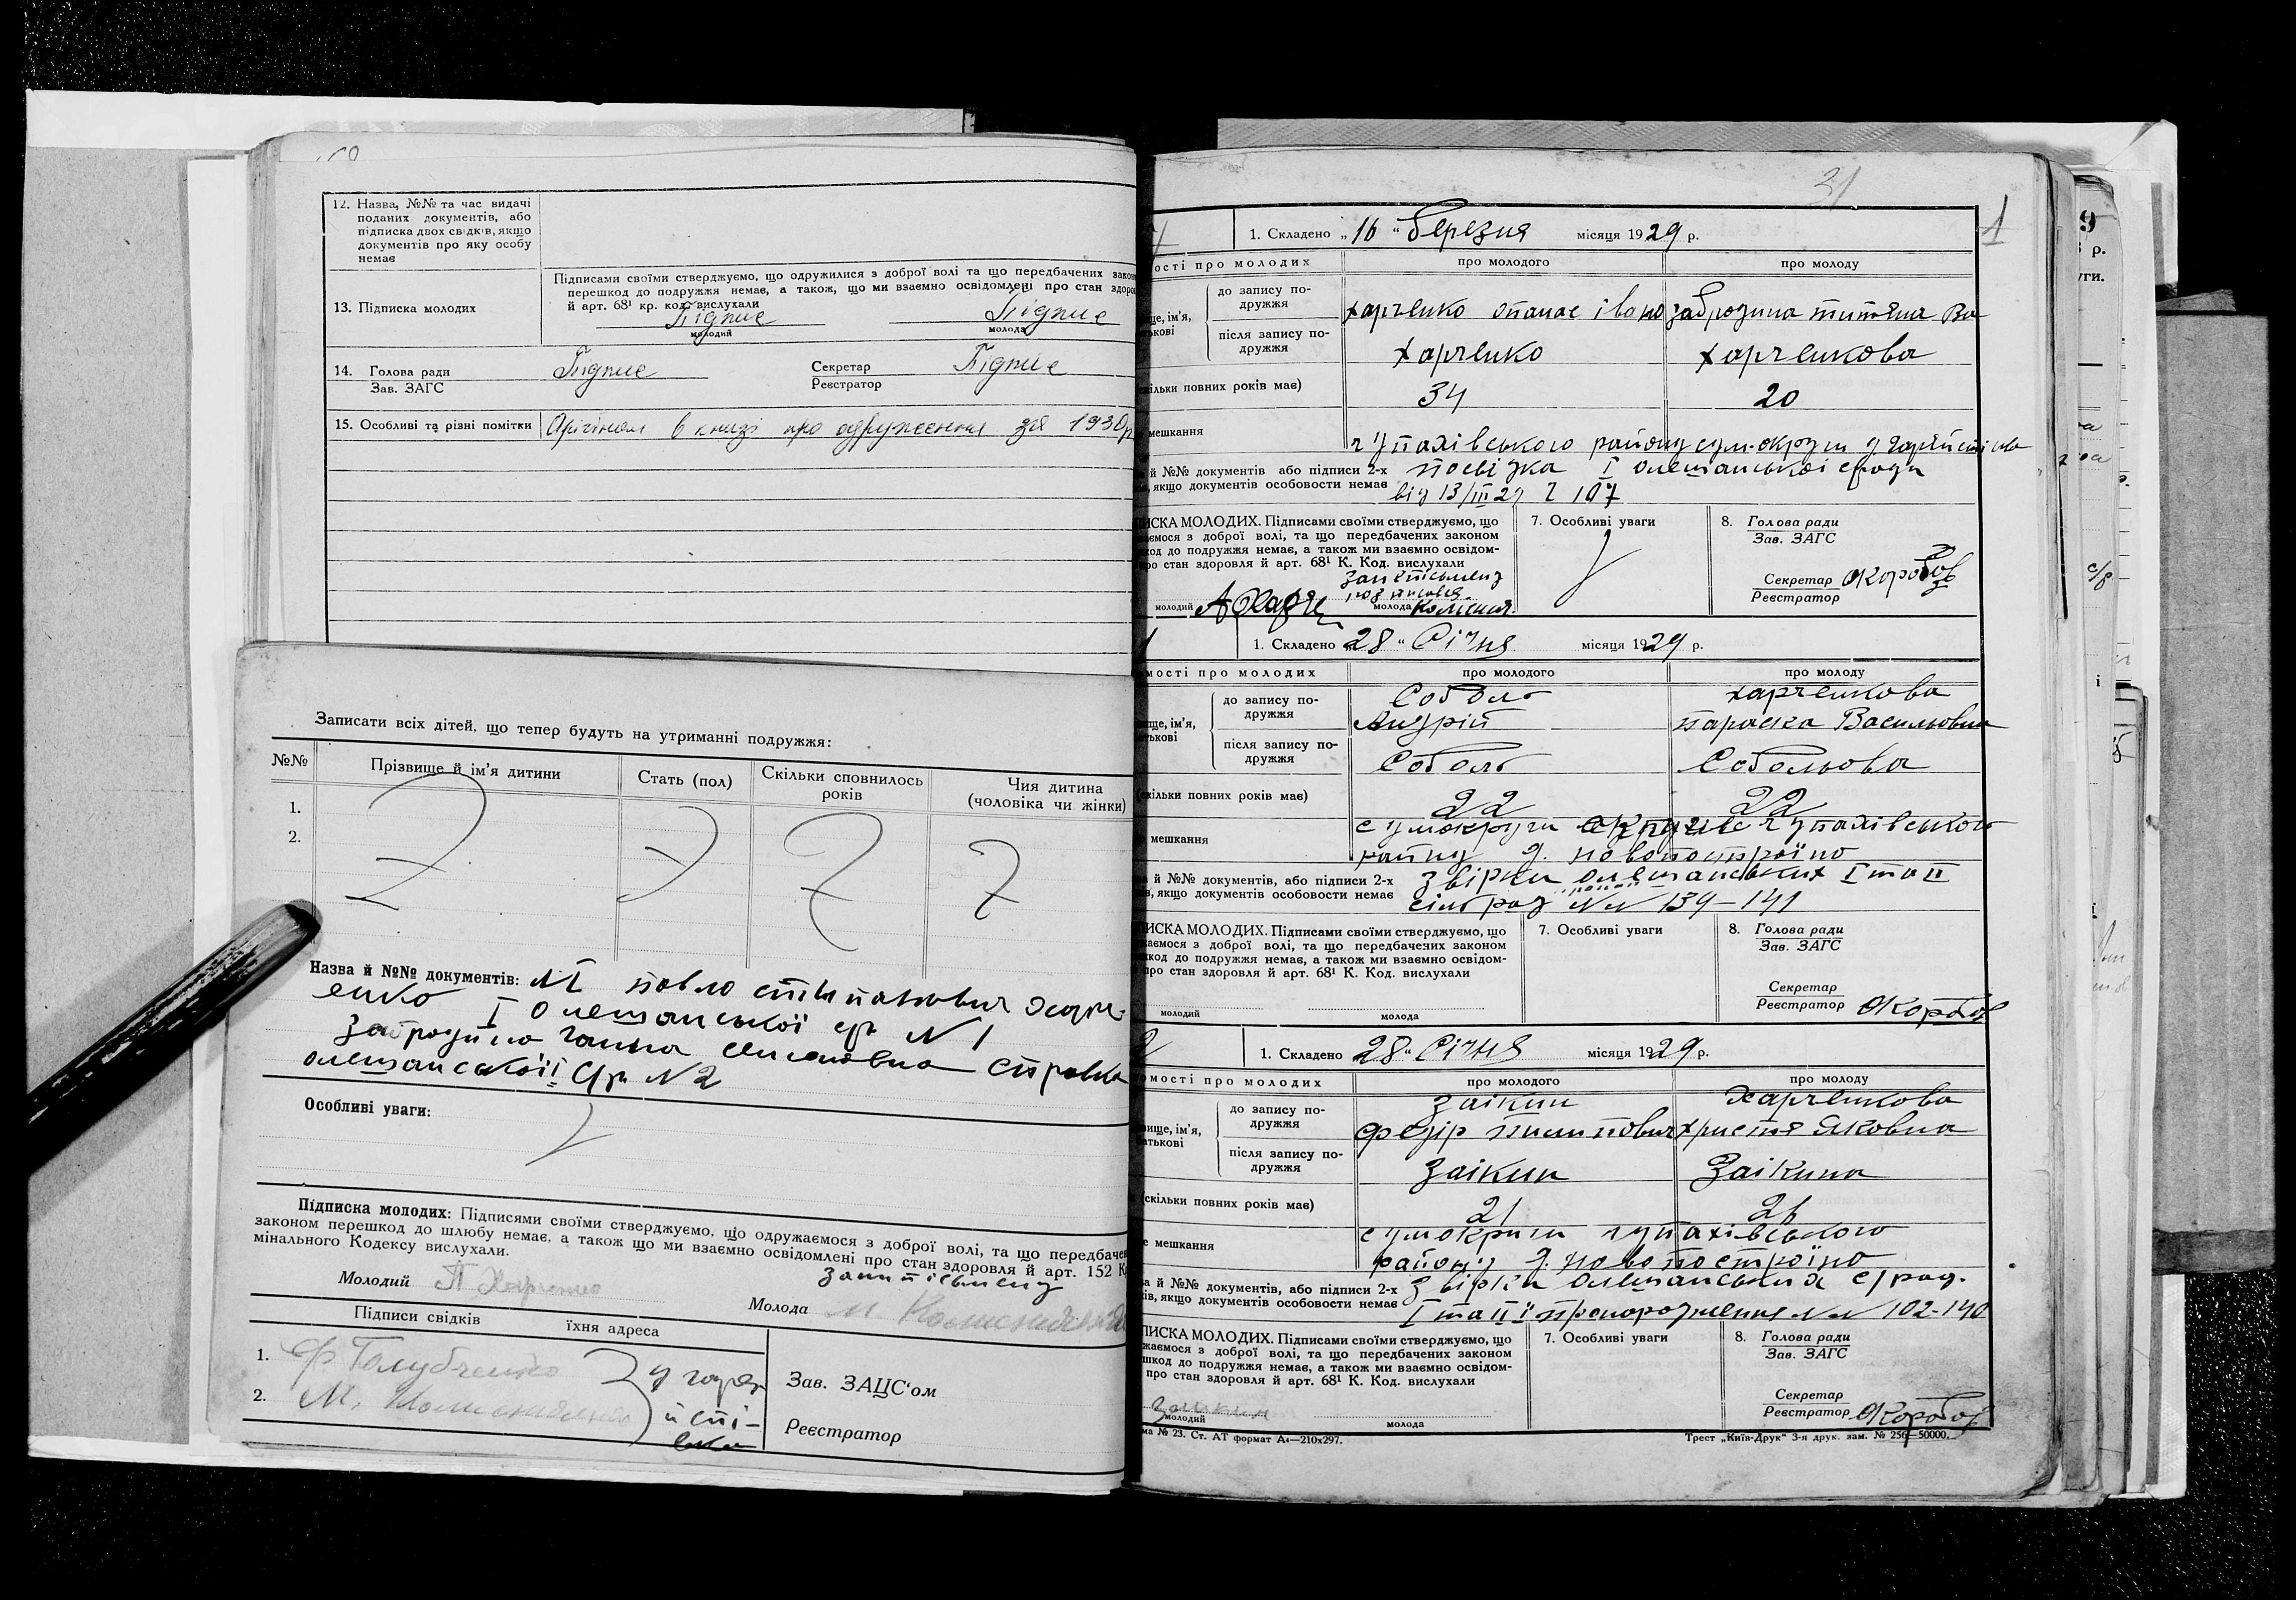 12. Назва, №№ та час видачі
поданих документів, або
підписка двох свідків, якщо
документів про яку особу
немає
13. Підписка молодих
Підписами своїми стверджуємо, що одружилися з доброї волі та що передбачених закон
перешкод до подружжя немає, а також, що ми взаємно освідомлені про стан здоров
й арт. 68¹ кр. код. вислухали
Підпис Підпис
молодий молода
14. Голова ради Підпис Секретар Підпис
Зав. ЗАГС Реєстратор
15. Особливі та різні помітки Орігінал в книзі про одруження за 1930р
Записати всіх дітей, що тепер будуть на утриманні подружжя:
№№ Прізвище й ім'я дитини Стать (пол) Скільки сповнилось років Чия дитина (чоловіка чи жінки)
1.
2.
Назва й №№ документів: Павло Степанович Харч-
енко І Олешанської ср N 1
Забродина Ганна Семеновна справка
олешанської ІІ с/р N 2
Особливі уваги:
Підписка молодих: Підписями своїми стверджуємо, що одружаємося з доброї волі, та що передбачен
законом перешкод до шлюбу немає, а також що ми взаємно освідомлені про стан здоров'я й арт. 152 К
мінального Кодексу вислухали.
Молодий П Харченко
Молода
Підписи свідків їхня адреса
1. Ф. Голубченко
2. М.
Зав. ЗАЦС'ом
Реєстратор
31
1
1. Складено „16“ Березня місяця 1929 р.
ості про молодих про молодого про молоду
ще, ім'я, ькові
до запису подружжя Харченко Опанас Івано Забродина Титяна Ва
після запису подружжя Харченко Харченкова
скільки повних років має) 34 20
мешкання Чупахівського району сум.окрузи
й №№ документів або підписи 2-х Посвідка І Олешанської сради
, якщо документів особовости немає від 13/III 29 107
ИСКА МОЛОДИХ. Підписами своїми стверджуємо, що
аємося з доброї волі, та що передбачених законом
код до подружжя немає, а також ми взаємно освідом-
ро стан здоров'я й арт. 68¹ К. Код. вислухали
7. Особливі уваги
8. Голова ради
Зав. ЗАГС
Секретар
Реєстратор Коробов
молодий А Харче
молода
1. Складено „28“ Січня місяця 1929 р.
мості про молодих про молодого про молоду
вище, ім'я, тькові
до запису подружжя Соболь Харченкова
Андрій Параска Васильовна
після запису подружжя Соболь Собольова
скільки повних років має) 22 22
мешкання Сумокруги Чупахівського
району х. Новопостроїно
а й №№ документів, або підписи 2-х Звірки Олешанських І та ІІ
ів, якщо документів особовости немає сільрад NN 139-141
ПИСКА МОЛОДИХ. Підписами своїми стверджуємо, що
жаємося з доброї волі, та що передбачених законом
шкод до подружжя немає, а також ми взаємно освідом-
про стан здоровля й арт. 68¹ К. Код. вислухали
7. Особливі уваги
8. Голова ради
Зав. ЗАГС
Секретар
Реєстратор Коробов
молодий молода
2 1. Складено „28“ Січня місяця 1929 р.
омості про молодих про молодого про молоду
вище, ім'я, атькові
до запису подружжя Заікин Харченкова
Федір Пилипович Христя Яковна
після запису подружжя Заікин Заікина
(скільки повних років має) 21 21
е мешкання Сумокруги Чупахівського
району х. Новопостроїно
а й №№ документів, або підписи 2-х Звірки Олешанських с/рад.
ків, якщо документів особовости немає І та ІІ ї NN 102-140
ПИСКА МОЛОДИХ. Підписами своїми стверджуємо, що
жаємося з доброї волі, та що передбачених законом
шкод до подружжя немає, а також ми взаємно освідом-
про стан здоров'я й арт. 68¹ К. Код. вислухали
7. Особливі уваги
8. Голова ради
Зав. ЗАГС
Секретар
Реєстратор Коробов
Заикин
молодий молода
ма № 23. Ст. АТ формат А4—210х297. Трест „Київ-Друк“ 3-я друк. зам. № 256—50000.